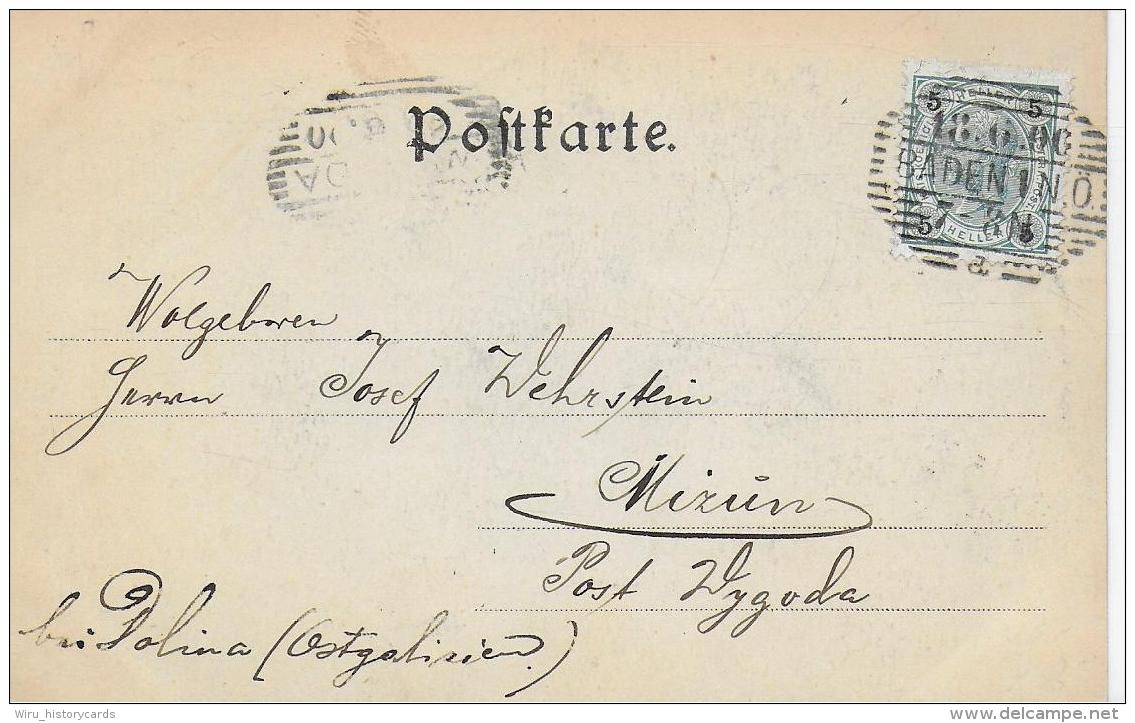 Postkarte.
5 HELLER 5
18.6.00
BADEN I. N.Ö.
8 N
5 HELLER 5
a
Wolgeboren
Herrn Josef Wehrstein
Mizún
Post Wygoda
bei Dolina (Ostgalizien.)
Wiru_historycards
delcampe.net